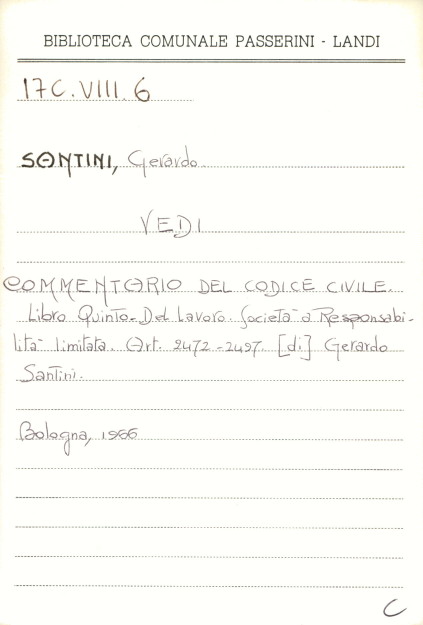 BIBLIOTECA COMUNALE PASSERINI - LANDI
17C.VIII.6
SANTINI, Gerardo
VEDI
COMMENTARIO DEL CODICE CIVILE.
Libro Quinto - Del Lavoro. Società a Responsabi-
lità limitata. Art. 2472-2497. [di] Gerardo
Santini.
Bologna, 1966
C